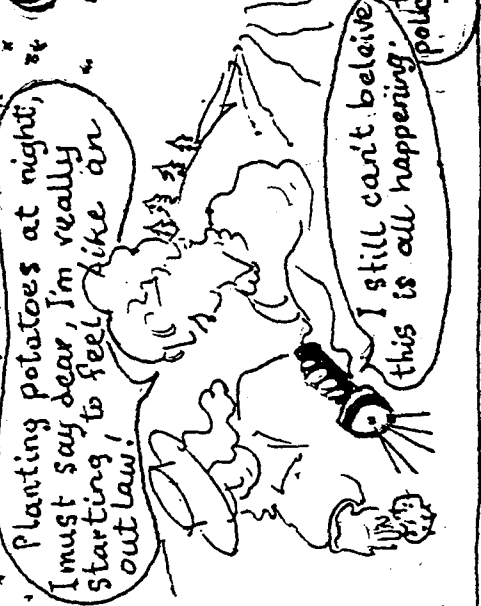 Planting potatoes at night,
I must say dear, I'm really
starting to feel like an
outlaw!
I still can't beleive
this is all happening.